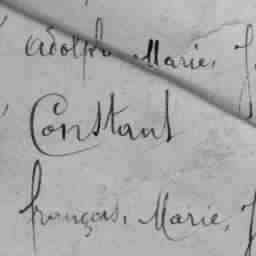 Adolphe Marie, J
Constant
françois, Marie, J